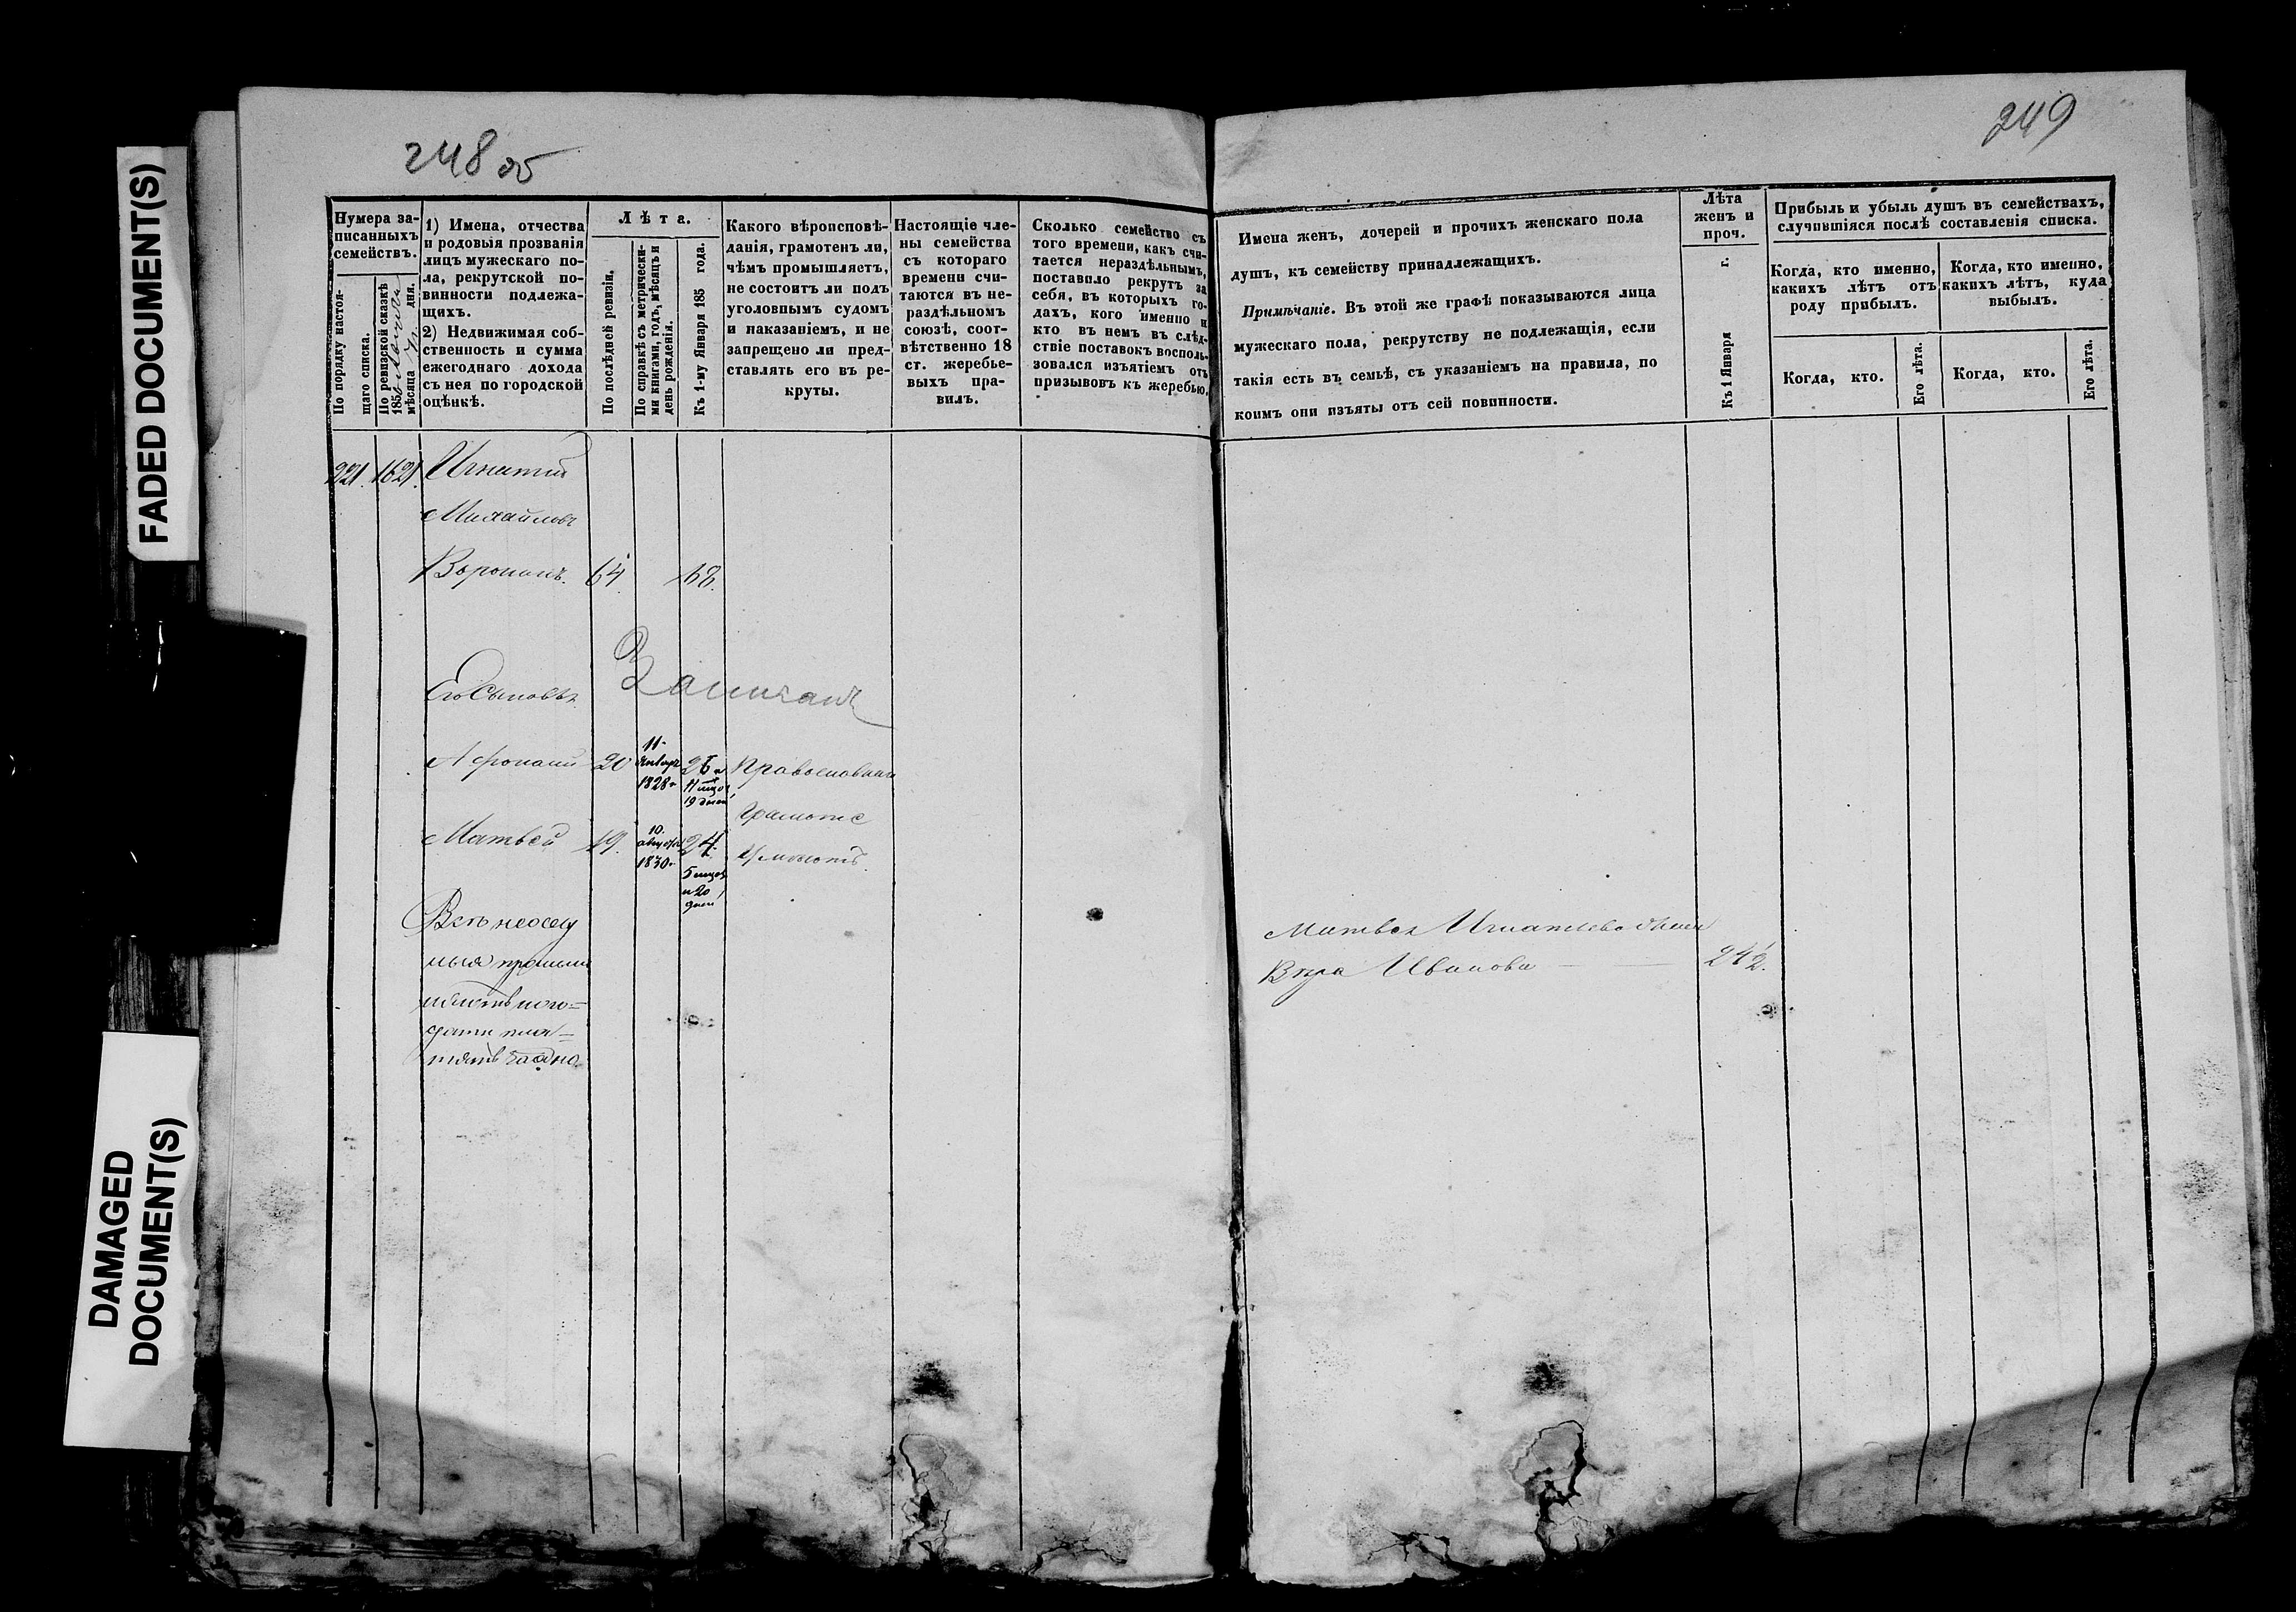 FADED DOCUMENT(S)
DAMAGED
DOCUMENT(S)
248 об
Нумера за-
писанныхъ
семействъ.
По порядку настоя-
щаго списка.
По ревизской сказкѣ
185
мѣсяца дня.
1) Имена, отчества
и родовыя прозванія
лицъ мужескаго по-
ла, рекрутской по-
винности подлежа-
щихъ.
2) Недвижимая соб-
ственность и сумма
ежегоднаго дохода
съ нея по городской
оцѣнкѣ.
Лѣта.
По послѣдней ревизіи.
По справкѣ съ метрически-
ми книгами, годъ, мѣсяцъ и
день рожденія.
Къ 1-му Января 185 года.
Какого вѣроисповѣ-
данія, грамотенъ ли,
чѣмъ промышляетъ,
не состоитъ ли подъ
уголовнымъ судомъ
и наказаніемъ, и не
запрещено ли пред-
ставлять его въ ре-
круты.
Настоящіе чле-
ны семейства
съ котораго
времени счи-
таются въ не-
раздѣльномъ
союзѣ, соот-
вѣтственно 18
ст. жеребье-
выхъ пра-
вилъ.
Сколько семейство съ
того времени, какъ счи-
тается нераздѣльнымъ,
поставило рекрутъ за
себя, въ которыхъ го-
дахъ, кого именно и
кто въ немъ въ слѣд-
ствіе поставокъ восполь-
зовался изъятіемъ отъ
призывовъ къ жеребью.
221. 1621. Игнатий
Михайловъ
Воронинъ. 64. 68.
Его сыновья
Афонасий 20 11. Январ 1828 г 26 11 19 дней Православныи
Грамоте
Матвей 19. 10. 1830 г 24 5 и 20 дней умѣютъ.
249
Имена женъ, дочерей и прочихъ женскаго пола
душъ, къ семейству принадлежащихъ.
Примѣчаніе. Въ этой же графѣ показываются лица
мужескаго пола, рекрутству не подлежащія, если
такія есть въ семьѣ, съ указаніемъ на правила, по
коимъ они изъяты отъ сей повинности.
Лѣта
женъ и
проч.
Къ 1 Января г.
Прибыль и убыль душъ въ семействахъ,
случившіяся послѣ составленія списка.
Когда, кто именно,
какихъ лѣтъ отъ
роду прибылъ.
Когда, кто именно,
какихъ лѣтъ, куда
выбылъ.
Когда, кто.
Его лѣта.
Когда, кто.
Его лѣта.
Матвея Игнатьева жена
Вѣра Иванова